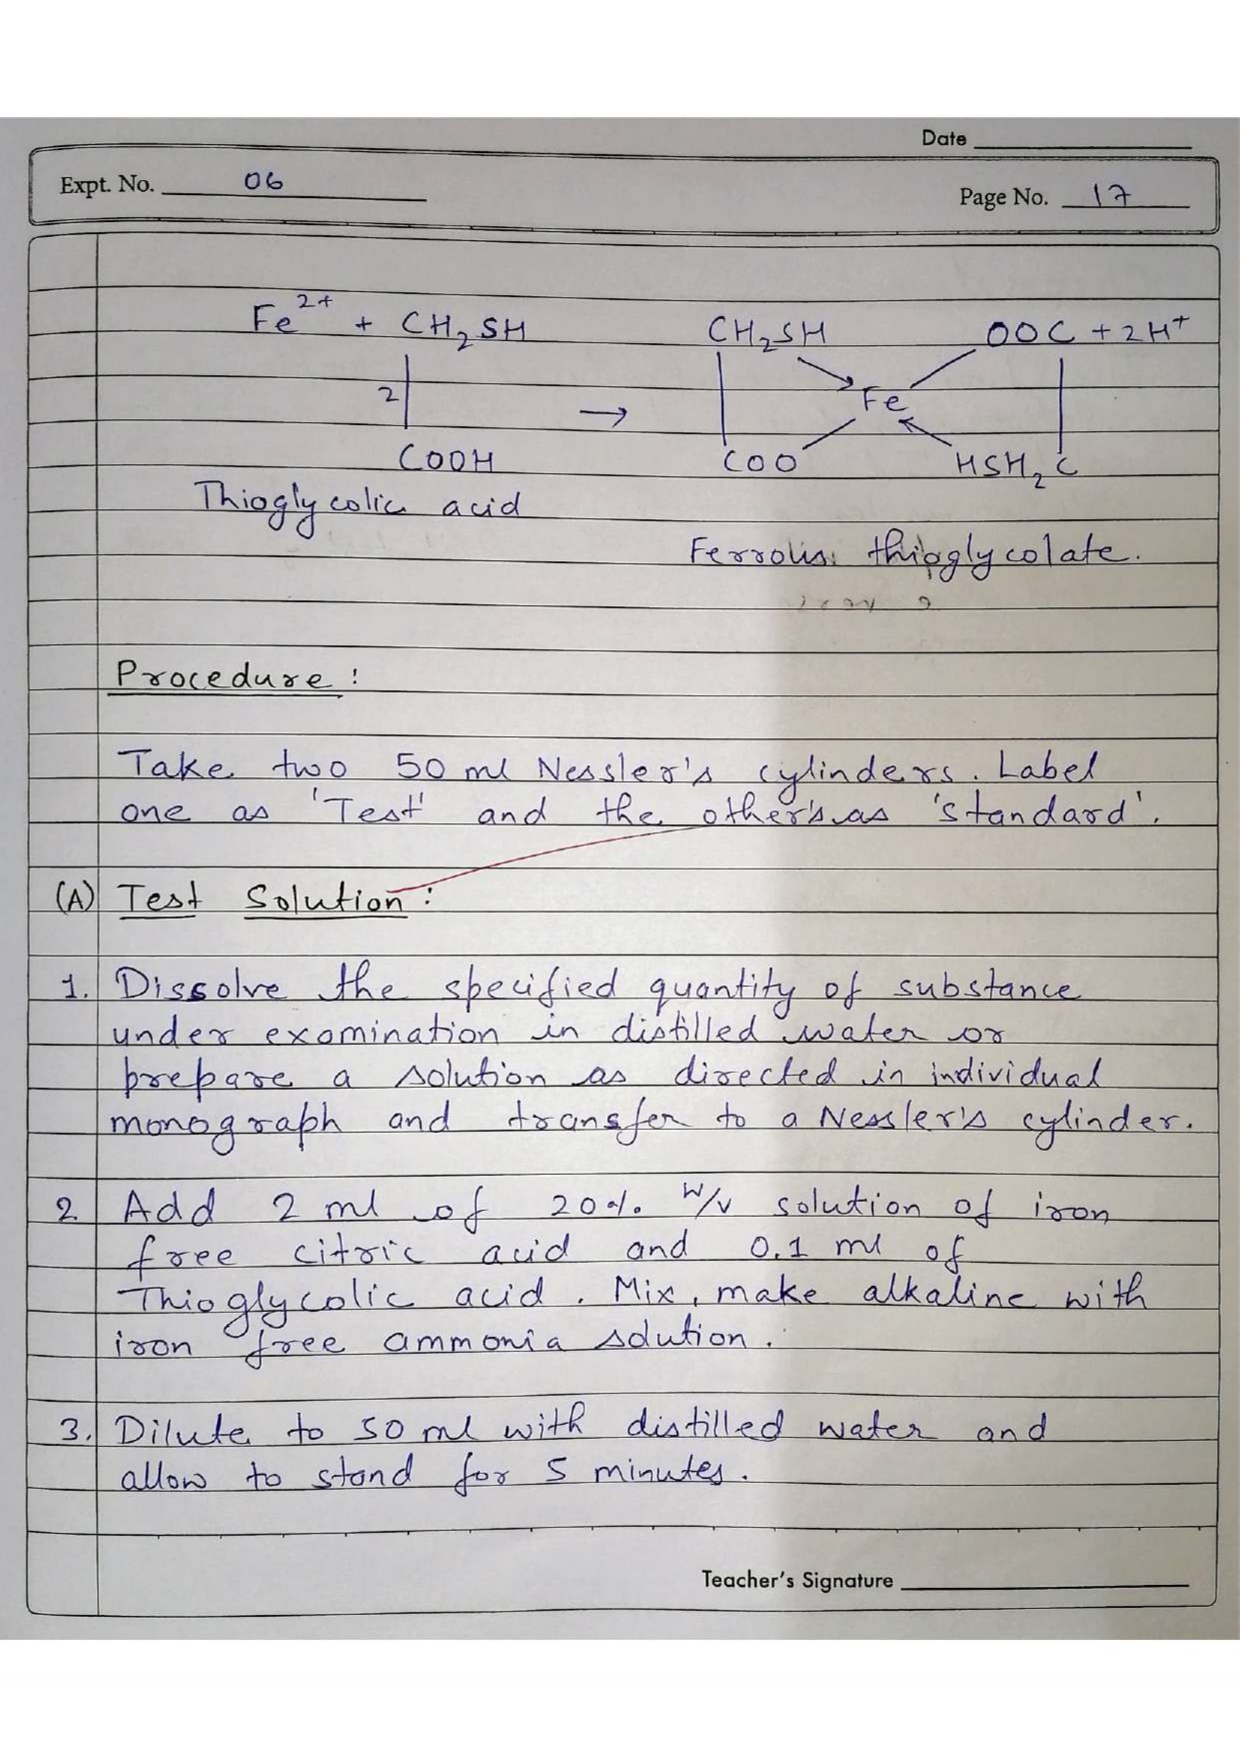 Date
Expt. No. 06
Page No. 17
Fe2+ + CH2SH → CH2SH OOC + 2H+
2
Fe
COOH COO HSH2C
Thioglycolic acid
Ferrous thioglycolate.
Procedure :
Take two 50 ml Nessler's cylinders. Label
one as 'Test' and the other's as 'standard'.
(A) Test Solution :
1. Dissolve the specified quantity of substance
under examination in distilled water or
prepare a solution as directed in individual
monograph and transfer to a Nessler's cylinder.
2 Add 2 ml of 20% w/v solution of iron
free citric acid and 0.1 ml of
Thioglycolic acid. Mix, make alkaline with
iron free ammonia solution.
3. Dilute to 50 ml with distilled water and
allow to stand for 5 minutes.
Teacher's Signature